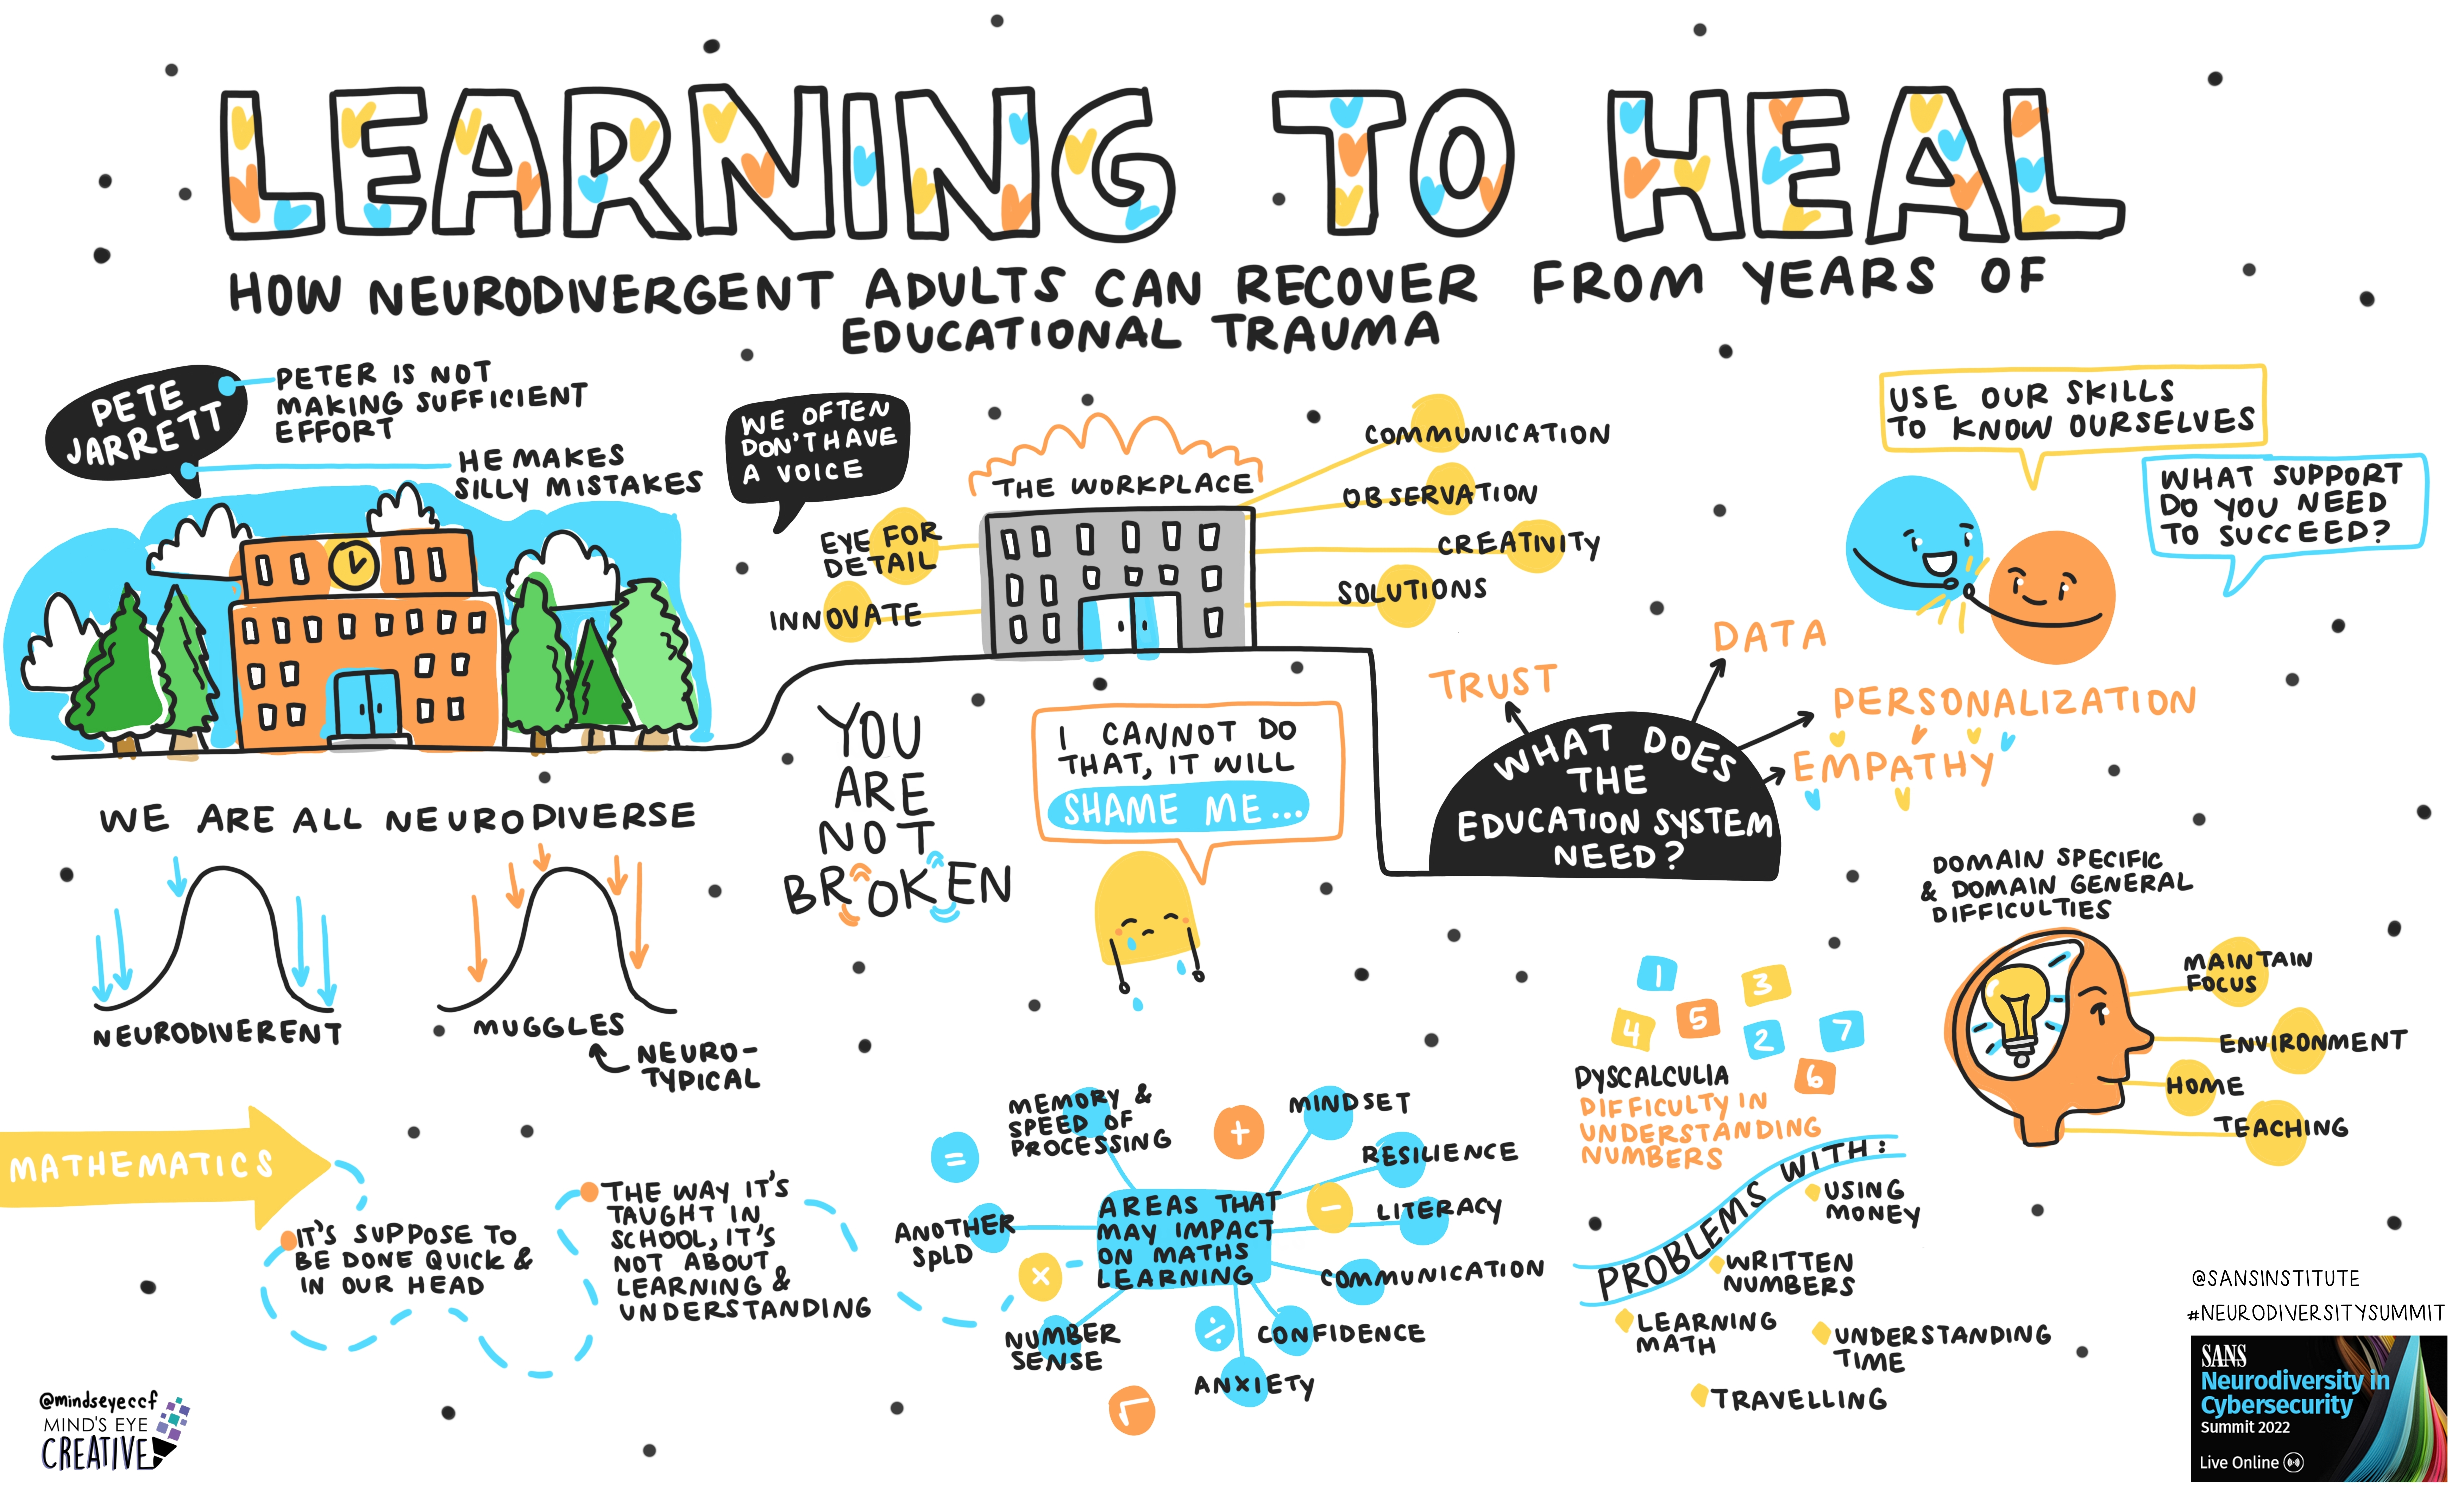 LEARNING TO HEAL
HOW NEURODIVERGENT ADULTS CAN RECOVER FROM YEARS OF
EDUCATIONAL TRAUMA
PETE
JARRETT
PETER IS NOT
MAKING SUFFICIENT
EFFORT
HE MAKES
SILLY MISTAKES
WE OFTEN
DON'T HAVE
A VOICE
THE WORKPLACE
EYE FOR
DETAIL
INNOVATE
COMMUNICATION
OBSERVATION
CREATIVITY
SOLUTIONS
USE OUR SKILLS
TO KNOW OURSELVES
WHAT SUPPORT
DO YOU NEED
TO SUCCEED?
WE ARE ALL NEURODIVERSE
NEURODIVERENT
MUGGLES
NEURO-
TYPICAL
YOU
ARE
NOT
BROKEN
I CANNOT DO
THAT, IT WILL
SHAME ME...
TRUST
DATA
PERSONALIZATION
EMPATHY
WHAT DOES
THE
EDUCATION SYSTEM
NEED?
DOMAIN SPECIFIC
& DOMAIN GENERAL
DIFFICULTIES
MAINTAIN
FOCUS
ENVIRONMENT
HOME
TEACHING
MATHEMATICS
IT'S SUPPOSE TO
BE DONE QUICK &
IN OUR HEAD
THE WAY IT'S
TAUGHT IN
SCHOOL, IT'S
NOT ABOUT
LEARNING &
UNDERSTANDING
AREAS THAT
MAY IMPACT
ON MATHS
LEARNING
MEMORY &
SPEED OF
PROCESSING
ANOTHER
SPLD
NUMBER
SENSE
MINDSET
RESILIENCE
LITERACY
COMMUNICATION
CONFIDENCE
ANXIETY
=
+
−
×
÷
√
1
3
4
5
2
7
6
DYSCALCULIA
DIFFICULTY IN
UNDERSTANDING
NUMBERS
PROBLEMS WITH:
USING
MONEY
WRITTEN
NUMBERS
LEARNING
MATH
UNDERSTANDING
TIME
TRAVELLING
@mindseyeccf
MIND'S EYE
CREATIVE
@SANSINSTITUTE
#NEURODIVERSITYSUMMIT
SANS
Neurodiversity in
Cybersecurity
Summit 2022
Live Online